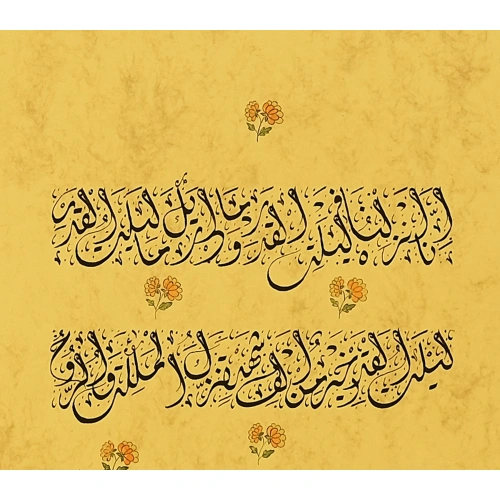 إِنَّا أَنزَلْنَاهُ فِي لَيْلَةِ الْقَدْرِ وَمَا أَدْرَاكَ مَا لَيْلَةُ الْقَدْرِ
لَيْلَةُ الْقَدْرِ خَيْرٌ مِنْ أَلْفِ شَهْرٍ تَنَزَّلُ الْمَلَائِكَةُ وَالرُّوحُ